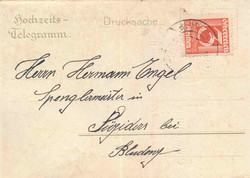 Hochzeits-
Telegramm.
Drucksache.
Herrn Hermann Engel
Spenglermeister in
bei